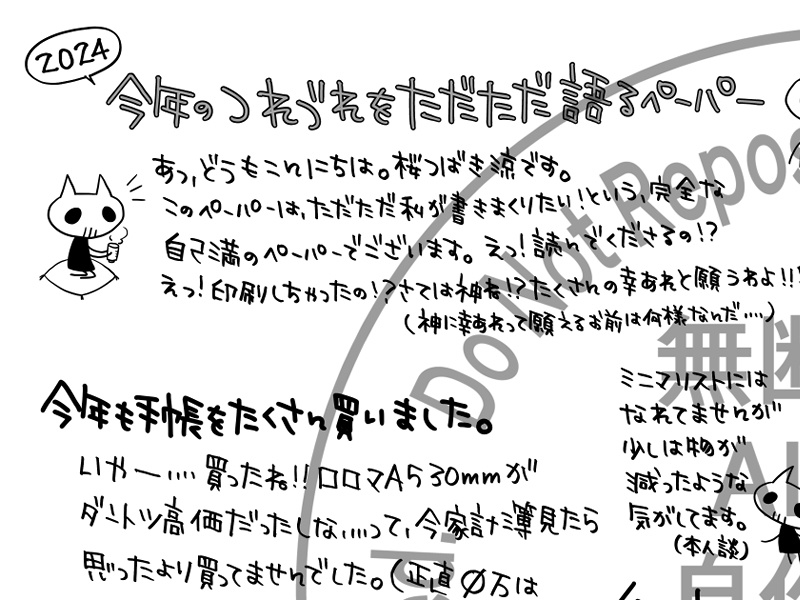 2024
今年のつれづれをただただ語るペーパー
あっ、どうもこんにちは。桜つばき涼です。
このペーパーは、ただただ私が書きまくりたい!という、完全な
自己満のペーパーでございます。えっ!読んでくださるの!?
えっ!印刷しちゃったの!?さては神ね!!?たくさんの幸あれと願うわよ!!
(神に幸あれって願えるお前は何様なんだ….)
今年も手帳をたくさん買いました。
いやー….買ったね!!ロロマA5 30mmが
ダントツ高価だったしな….って、今家計簿見たら
思ったより買ってませんでした。(正直∅万は
ミニマリストには
なれてませんが
少しは物が
減ったような
気がしてます。
(本人談)
Do Not Repos
無断
AI